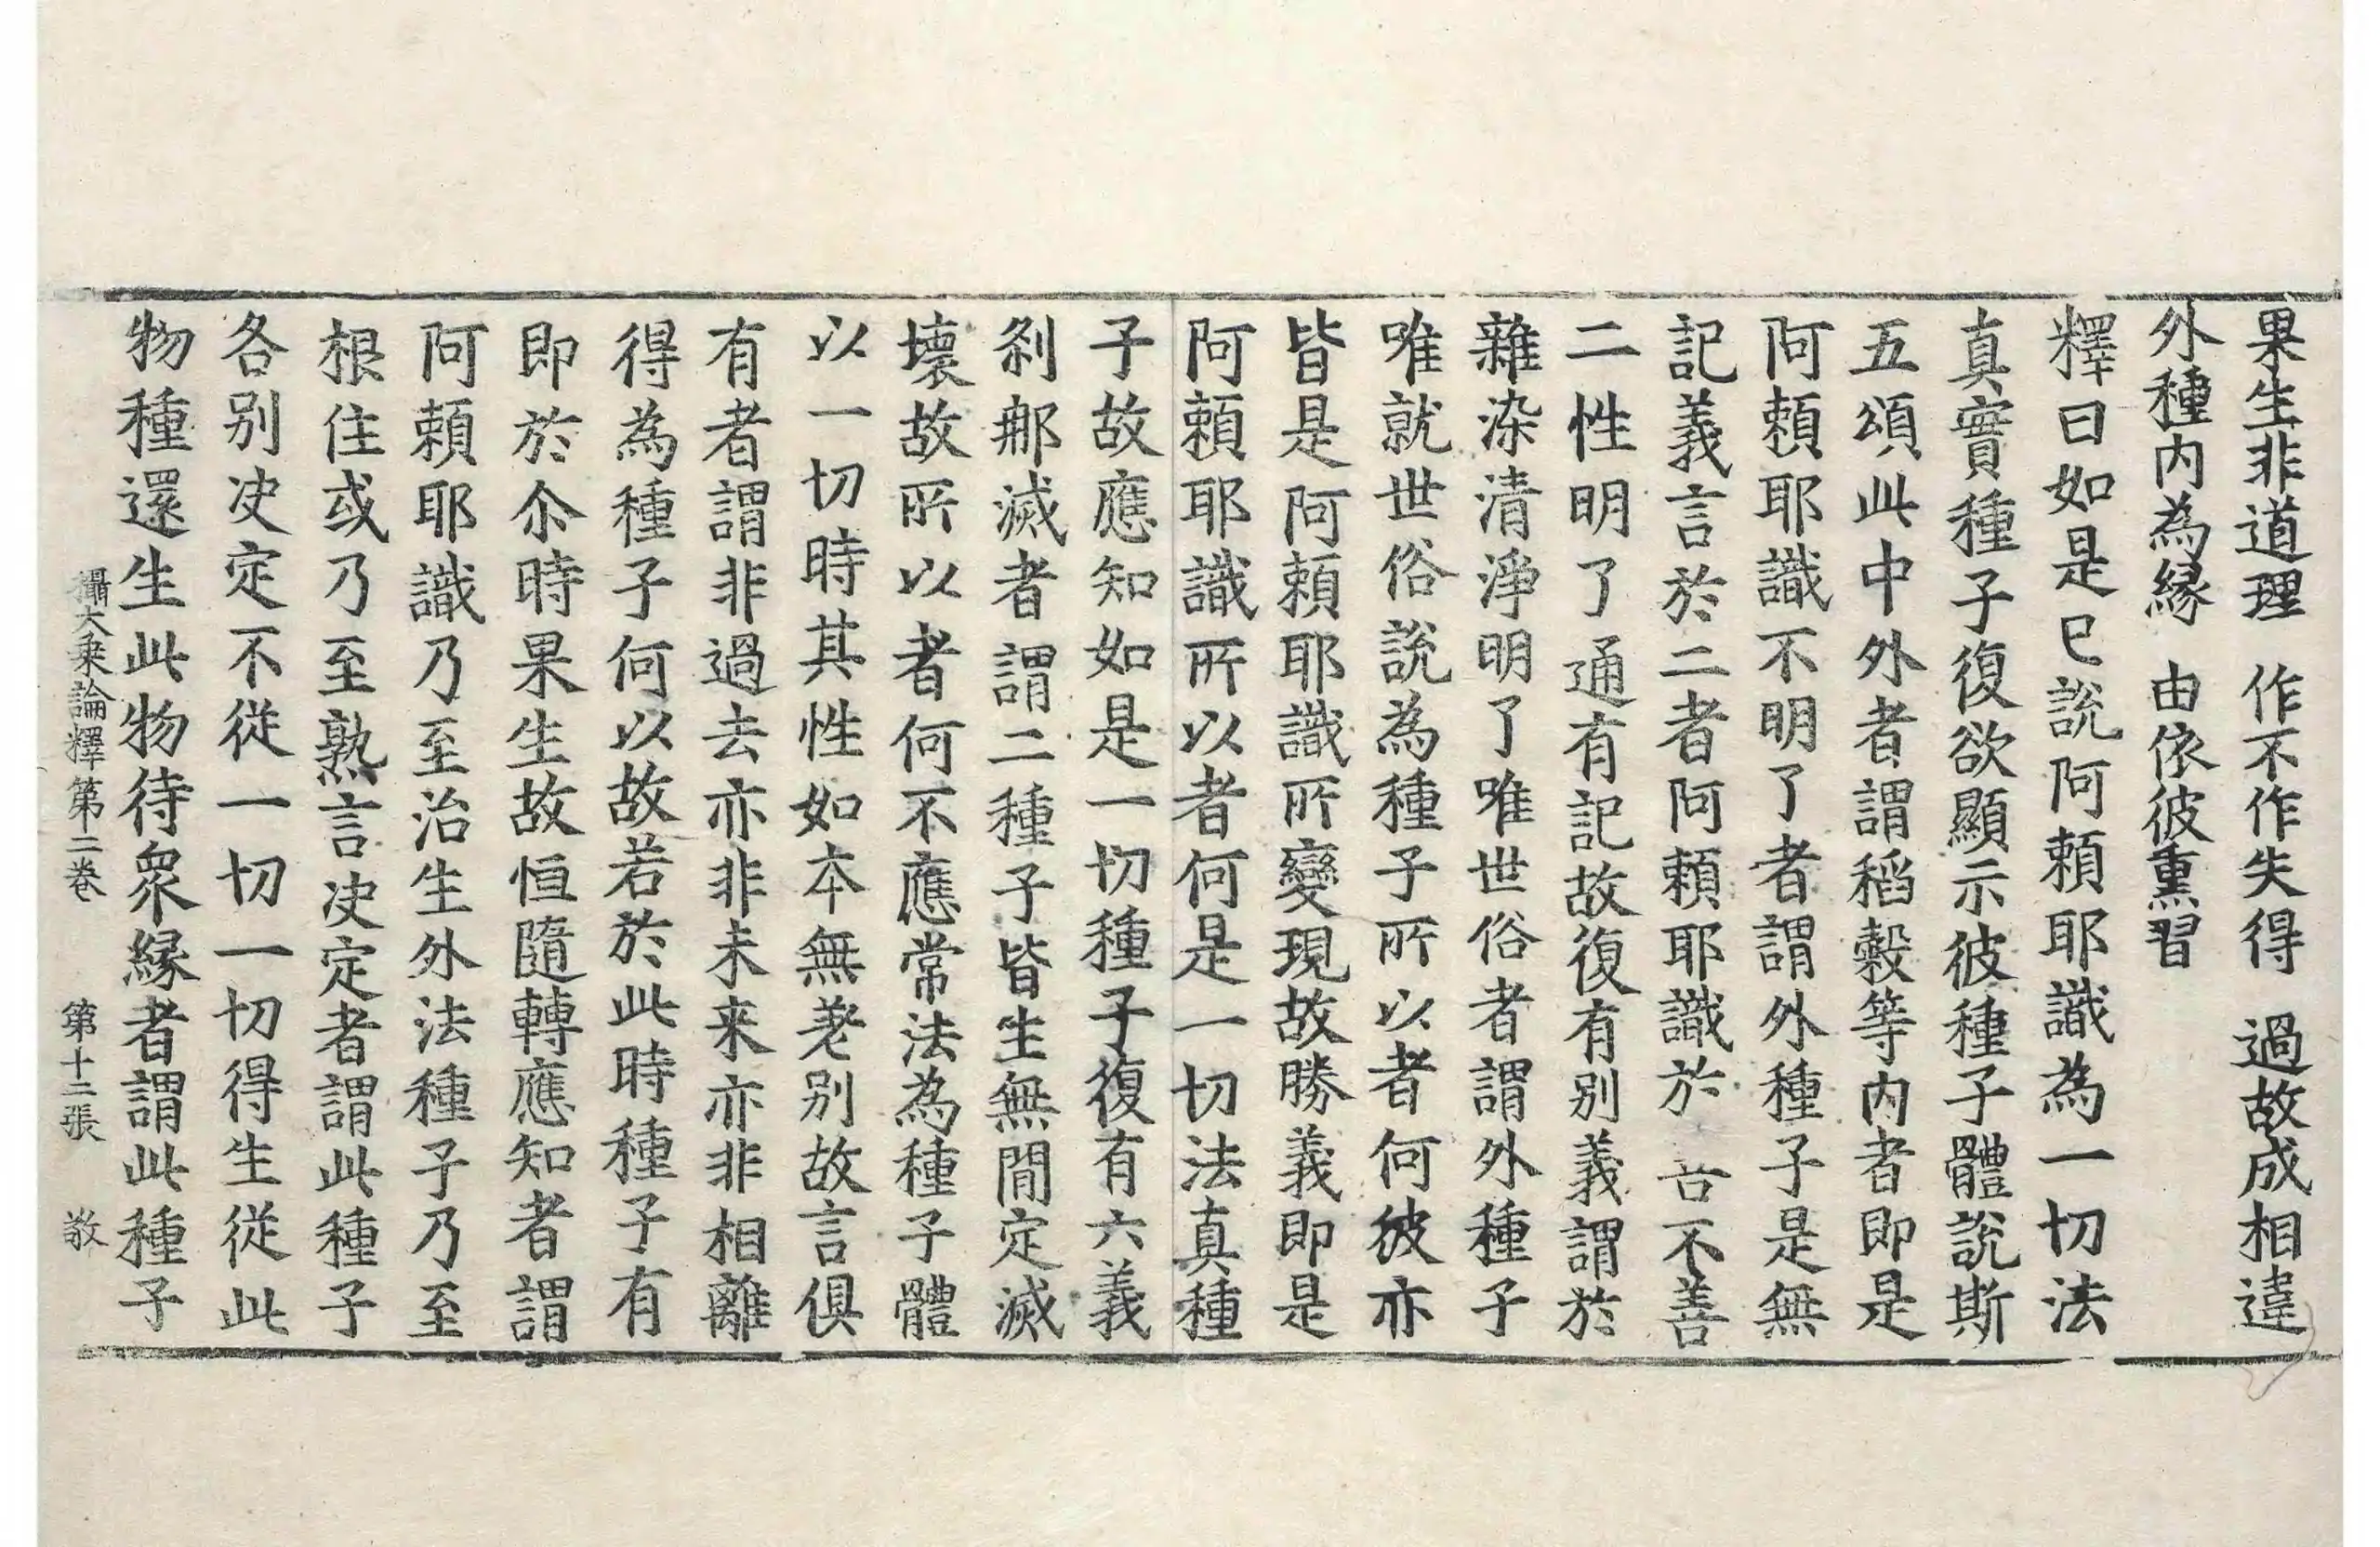 果生非道理　作不作失得　過故成相違
外種内為縁　由依彼熏習
釋曰如是已說阿頼耶識為一切法
真實種子復欲顯示彼種子體說斯
五頌此中外者謂稻糓等内者即是
阿頼耶識不明了者謂外種子是無
記義言於二者阿頼耶識於　不善
二性明了通有記故復有别義謂於
雜染清淨明了唯世俗者謂外種子
唯就世俗說為種子所以者何彼亦
皆是阿頼耶識所變現故勝義即是
阿頼耶識所以者何是一切法真種
子故應知如是一切種子復有六義
刹那滅者謂二種子皆生無間定滅
壞故所以者何不應常法為種子體
以一切時其性如本無差别故言俱
有者謂非過去亦非未来亦非相離
得為種子何以故若於此時種子有
即於尒時果生故恒隨轉應知者謂
阿頼耶識乃至治生外法種子乃至
根住或乃至熟言决定者謂此種子
各别决定不從一切一切得生從此
物種還生此物待衆縁者謂此種子
攝大乗論釋第二卷　第十二張　敬